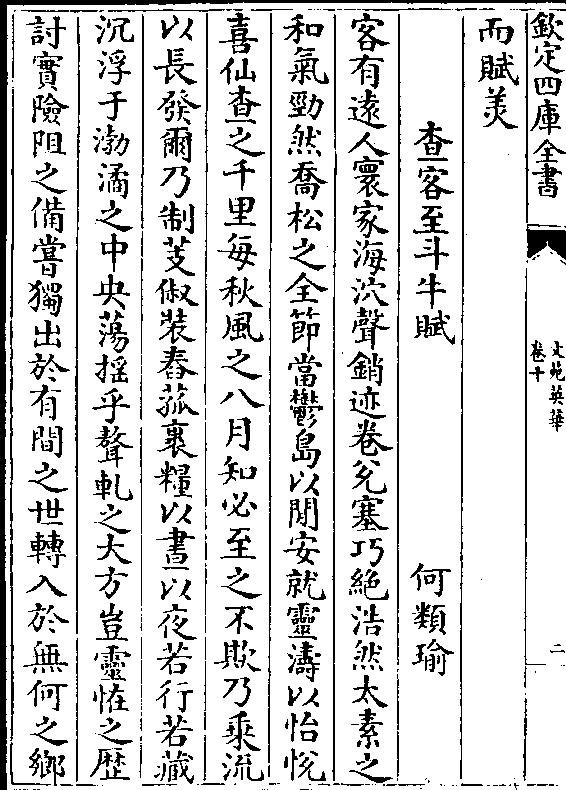 欽定四庫全書
文苑英華
卷十
二
而賦羙
查客至斗牛賦
何類瑜
客有遠人寰家海泬聲銷迹卷兊塞巧絶浩然太素之
和氣勁然喬松之全節當鬱島以閒安就靈濤以怡悅
喜仙查之千里每秋風之八月知必至之不欺乃乘流
以長發爾乃制芰俶裝舂菰裹糧以晝以夜若行若藏
沉浮于渤潏之中央蕩揺乎鼇軋之大方豈靈恠之歴
討實險阻之備嘗獨出於有間之世轉入於無何之鄉